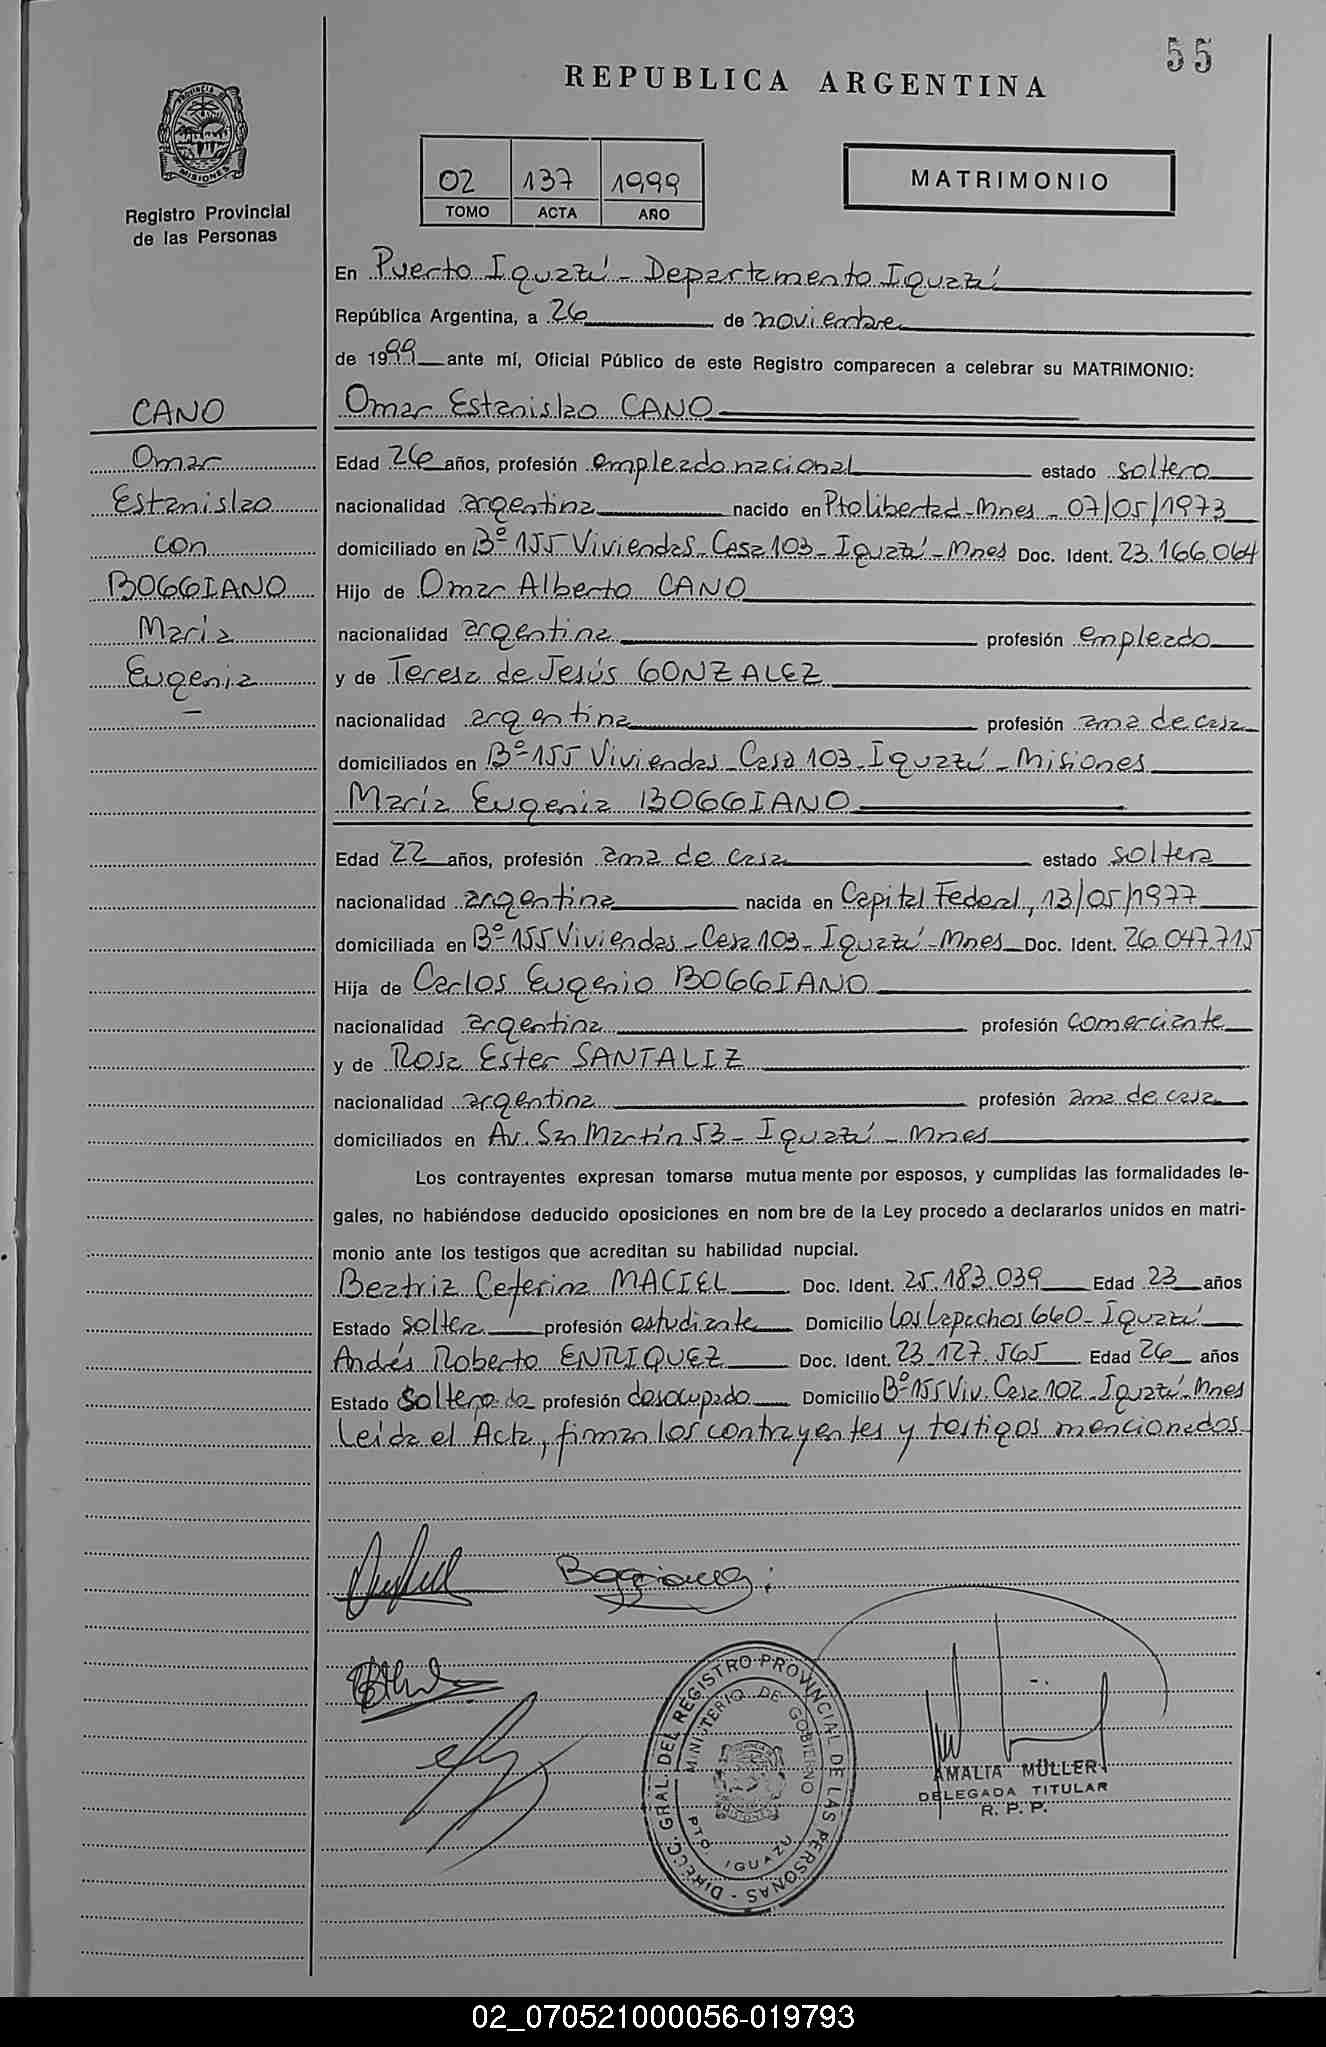 55
REPUBLICA ARGENTINA
PROVINCIA DE
MISIONES
Registro Provincial
de las Personas
02 137 1999
TOMO ACTA AÑO
MATRIMONIO
En Puerto Iguazú - Departamento Iguazú
República Argentina, a 26 de noviembre
de 1999 ante mí, Oficial Público de este Registro comparecen a celebrar su MATRIMONIO:
CANO
Omar
Estanislao
con
BOGGIANO
María
Eugenia
Omar Estanislao CANO
Edad 26 años, profesión empleado nacional estado soltero
nacionalidad argentina nacido en Pto Libertad - Mnes - 07/05/1973
domiciliado en Bº 155 Viviendas - Casa 103 - Iguazú - Mnes Doc. Ident. 23.166.064
Hijo de Omar Alberto CANO
nacionalidad argentina profesión empleado
y de Teresa de Jesús GONZALEZ
nacionalidad argentina profesión ama de casa
domiciliados en Bº 155 Viviendas - Casa 103 - Iguazú - Misiones
María Eugenia BOGGIANO
Edad 22 años, profesión ama de casa estado soltera
nacionalidad argentina nacida en Capital Federal, 13/05/1977
domiciliada en Bº 155 Viviendas - Casa 103 - Iguazú - Mnes Doc. Ident. 26.047.715
Hija de Carlos Eugenio BOGGIANO
nacionalidad argentina profesión comerciante
y de Rosa Ester SANTALIZ
nacionalidad argentina profesión ama de casa
domiciliados en Av. San Martín 53 - Iguazú - Mnes
Los contrayentes expresan tomarse mutua mente por esposos, y cumplidas las formalidades le-
gales, no habiéndose deducido oposiciones en nom bre de la Ley procedo a declararlos unidos en matri-
monio ante los testigos que acreditan su habilidad nupcial.
Beatriz Ceferina MACIEL Doc. Ident. 25.183.039 Edad 23 años
Estado soltera profesión estudiante Domicilio Los Lapachos 660 - Iguazú
Andrés Roberto ENRIQUEZ Doc. Ident. 23.127.565 Edad 26 años
Estado Soltero profesión desocupado Domicilio Bº 155 Viv. Casa 102 - Iguazú - Mnes
Leída el Acta, firman los contrayentes y testigos mencionados
Boggiano
DIRECC. GRAL. DEL REGISTRO PROVINCIAL DE LAS PERSONAS -
MINISTERIO DE GOBIERNO
PTO. IGUAZU
AMALIA MÜLLER
DELEGADA TITULAR
R. P. P.
02_070521000056-019793